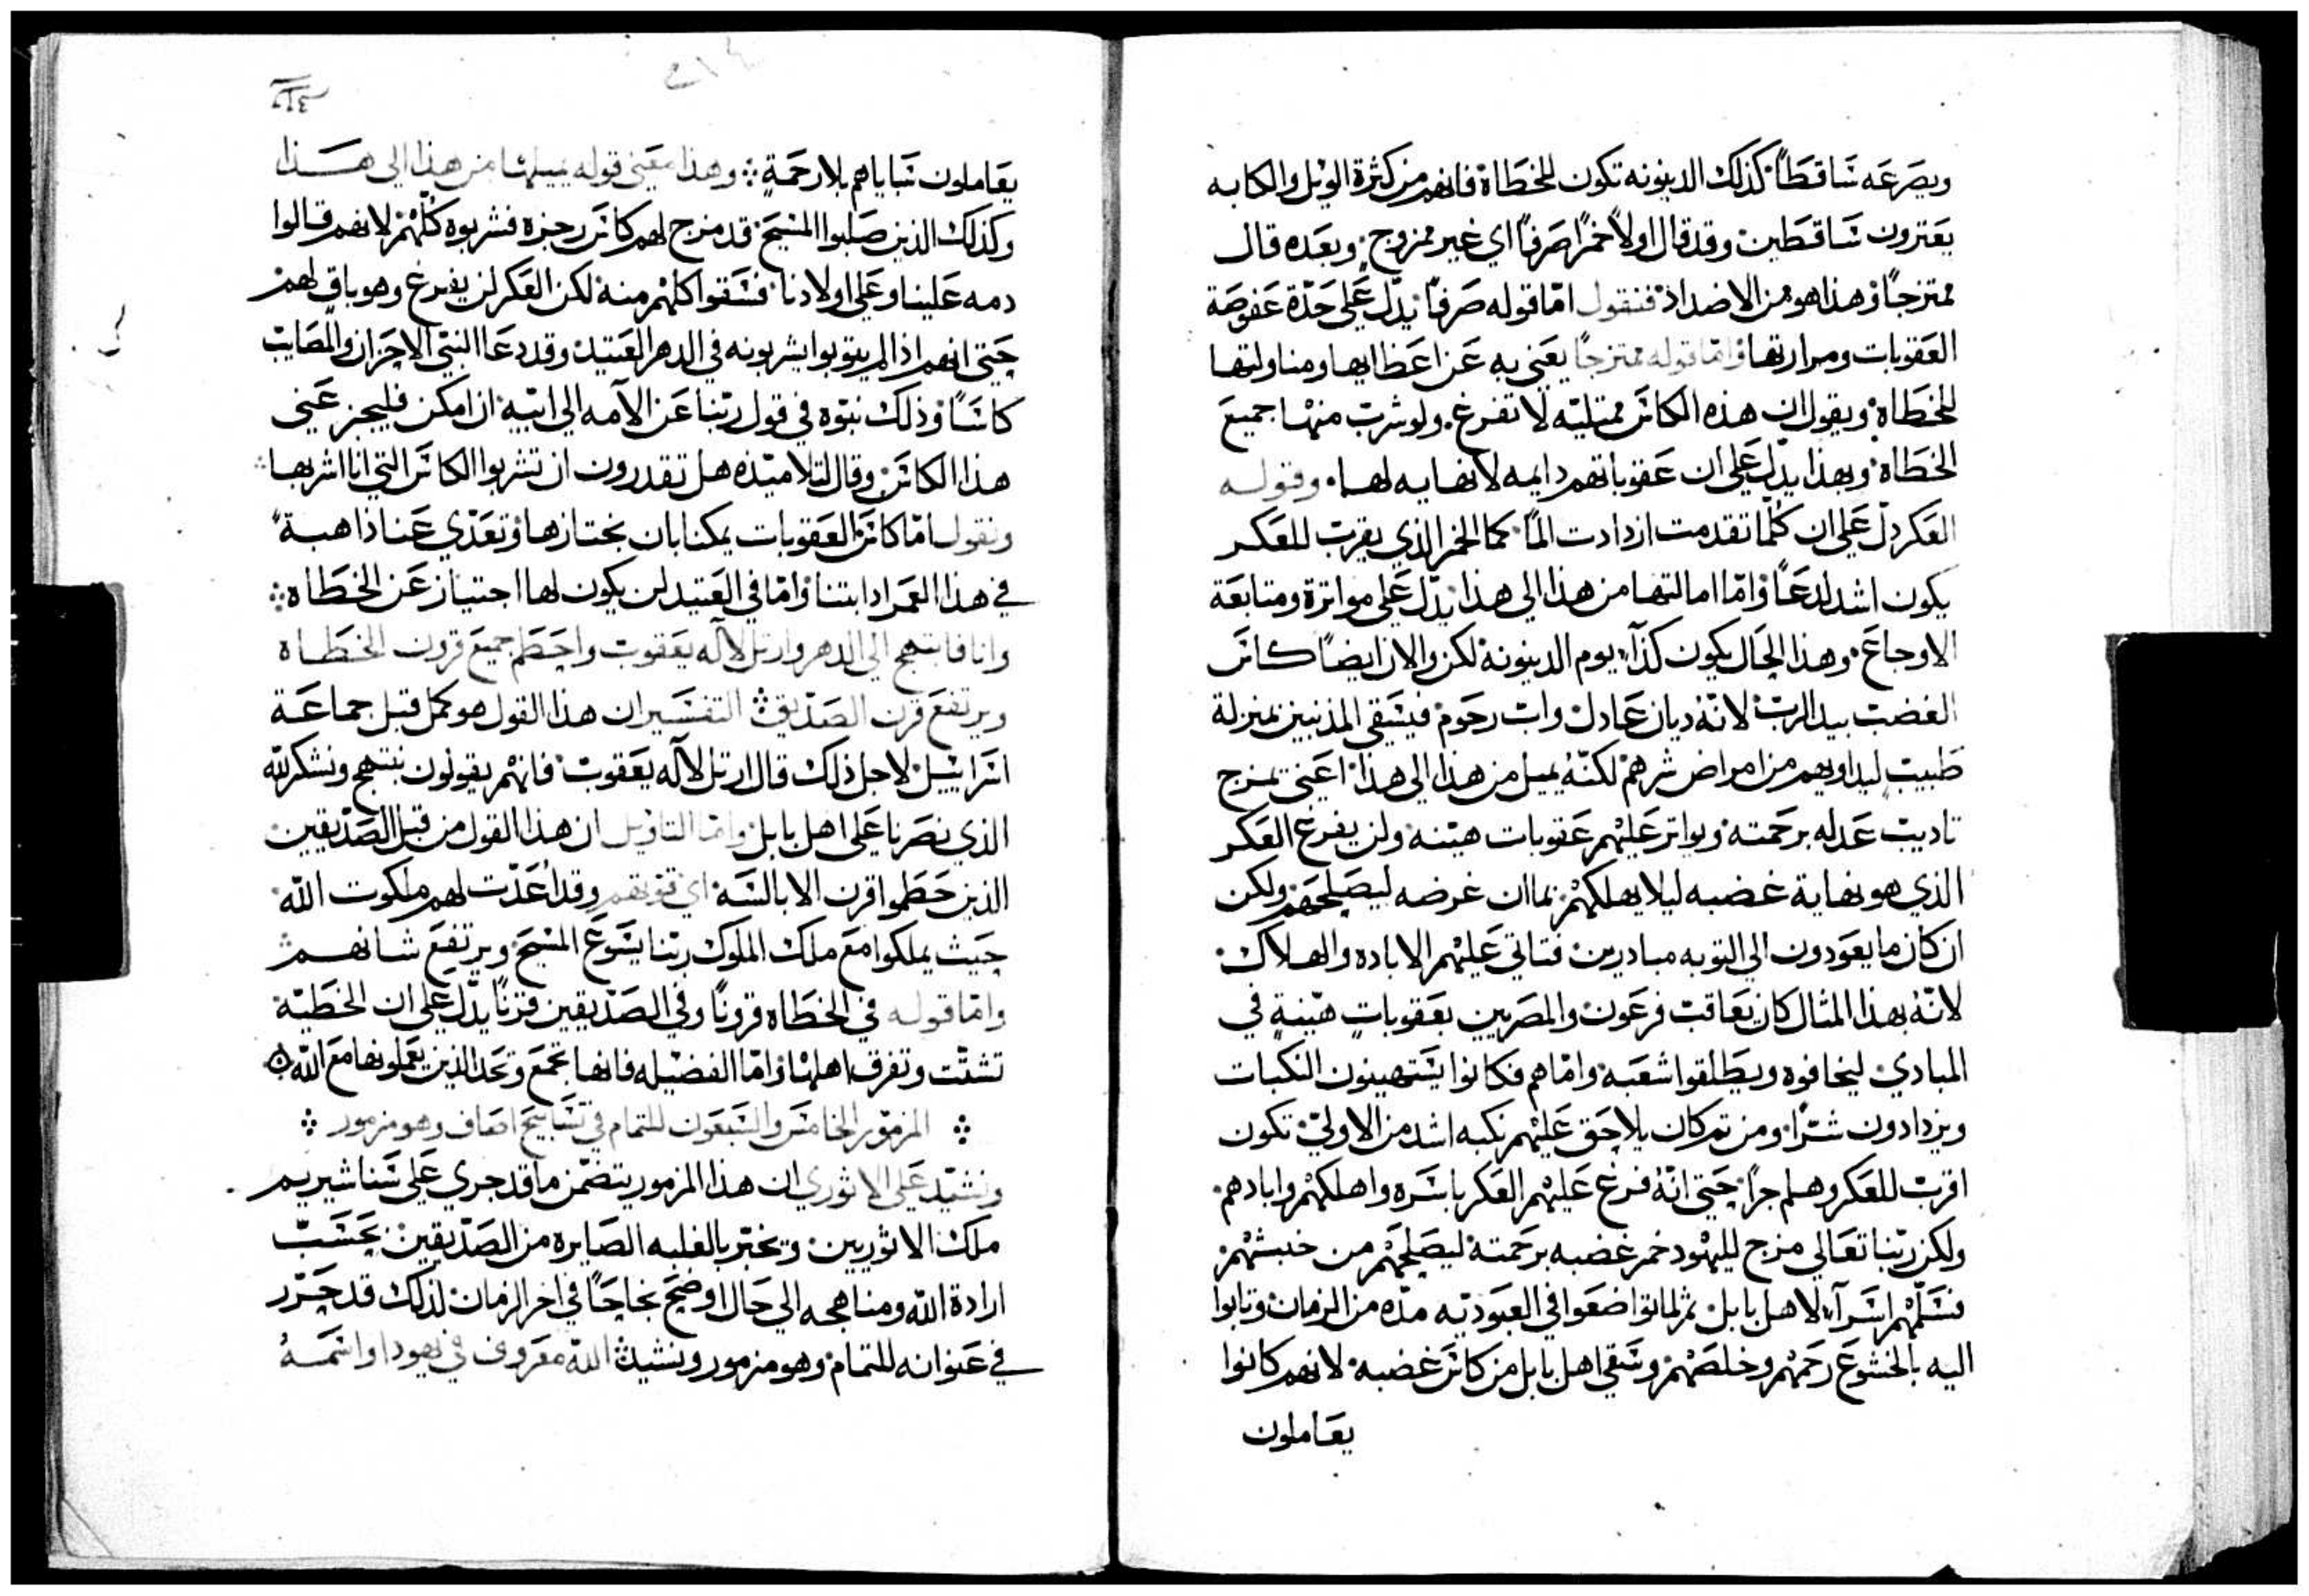 ويصرعه ساقطاً كذلك الدينونه تكون للخطاة فانهم من كثرة الويل والكابه
يعترون ساقطين وقد قال اولاً خمراً صرفاً اي غير ممزوج وبعده قال
ممتزجاً وهذا هو من الاضداد فنقول امّا قوله صرفاً يدّل على حدّة عفوصة
العقوبات ومرارتها وامّا قوله ممتزجاً يعني به عن اعطايها ومناولتها
للخطاة ويقول ان هذه الكاس ممتليّه لا تفرغ ولو شربت منها جميع
الخطاة وبهذا يدّل علي ان عقوباتهم دايمه لا نهايه لها وقوله
العكر دلّ علي ان كلّما تقدمت ازدادت المًا كما الخمر الذي يقرب للعكر
يكون اشد لدعاً وامّا امالتها من هذا الي هذا يدّل على مواترة ومتابعة
الاوجاع وهذا الحال يكون كذآء يوم الدينونة لكن والان ايضاً كاس
الغضب بيد الرب لانّه ديان عادل واب رحوم فيسقي المذنبين بمنزلة
طبيب ليداويهم من امراض شرهم لكنّه يميل من هذا الي هذا اعني يمزج
تاديب عدله برحمته ويواتر عليهم عقوبات هينه ولن يفرغ العكر
الذي هو نهاية غضبه ليلا يهلكهم بما ان غرضه ليصلحهم ولكن
ان كان ما يعودون الي التوبه مبادرين فتاتي عليهم الاباده والهلاك
لانّه بهذا المثال كان يعاقب فرعون والمصريين بعقوبات هيّنة في
المبادي ليخافوه ويطلقوا شعبه وامّا هم فكانوا يستهينون النكبات
ويزدادون شرّاً ومن ثم كان يلاحق عليهم نكبه اشد من الاولي تكون
اقرب للعكر وهلم جراً حتي انّه فرغ عليهم العكر باسره واهلكهم وابادهم
ولكن ربّنا تعالي مزج لليهود خمر غضبه برحمته ليصلحهم من خبثهم
فسلّمهم اسرآء لاهل بابل ثم لما تواضعوا في العبوديّه مدّه من الزمان وتابوا
اليه بالخشوع رحمهم وخلصهم وسقي اهل بابل من كاس غضبه لانهم كانوا
يعاملون
يعاملون سباياهم بلا رحمةٍ وهذا معني قوله يميلها من هذا الي هذا
وكذلك الذين صلبوا المسيح قد مزج لهم كاس رجزه فشربوه كلّهم لانهم قالوا
دمه علينا وعلي اولادنا فسقوا كلهم منه لكن العكر لن يفرغ وهو باقٍ لهم
حتي انهم اذا لم يتوبوا يشربونه في الدهر العتيد وقد دعا النبي الاحزان والمصايب
كاساً وذلك نبّوه في قول ربّنا عن الآمه الي ابيه ان امكن فليجز عني
هذا الكاس وقال لتلاميذه هل تقدرون ان تشربوا الكاس التي انا اشربها
ونقول امّا كاس العقوبات يمكنا بان نجتازها وتعدّي عنا ذاهبةً
في هذا العمر اذا تبنا وامّا في العتيد لن يكون لها اجتياز عن الخطاه
وانا فابتهج الي الدهر وارتل لآله يعقوب واحطم جميع قرون الخطاة
ويرتفع قرن الصدّيق التفسير ان هذا القول هو كمل قبل جماعة
اسراييل لاجل ذلك قال ارتل لآله يعقوب فانهم يقولون نبتهج ونشكر للّه
الذي نصرنا علي اهل بابل وامّا التاويل ان هذا القول من قبل الصدّيقين
الذين حطموا قرن الابالسة اي قوتهم وقد اُعدّت لهم ملكوت اللّه
حيث يملكوا مع ملك الملوك ربّنا يسوع المسيح ويرتفع شانهم
وامّا قوله في الخطاه قروناً وفي الصدّيقين قرناً يدّل علي ان الخطيّه
تشتّت وتفرق اهلها وامّا الفضيله فانها تجمع وتحد الذين يعملونها مع اللّه
المزمور الخامس والسبعون للتمام في تسابيح اصاف وهو مزمور
ونشيد علي الاثوري ان هذا المزمور يتضمّن ما قد جري علي سناشيريم
ملك الاثوريين ويخبّر بالغلبه الصايره من الصدّيقين بحسب
ارادة اللّه ومناهجه الي حال اوضح نجاحاً في اخر الزمان لذلك قد حرّر
في عنوانه للتمام وهو مزمور ونشيد اللّه معروف في يهودا واسمهُ